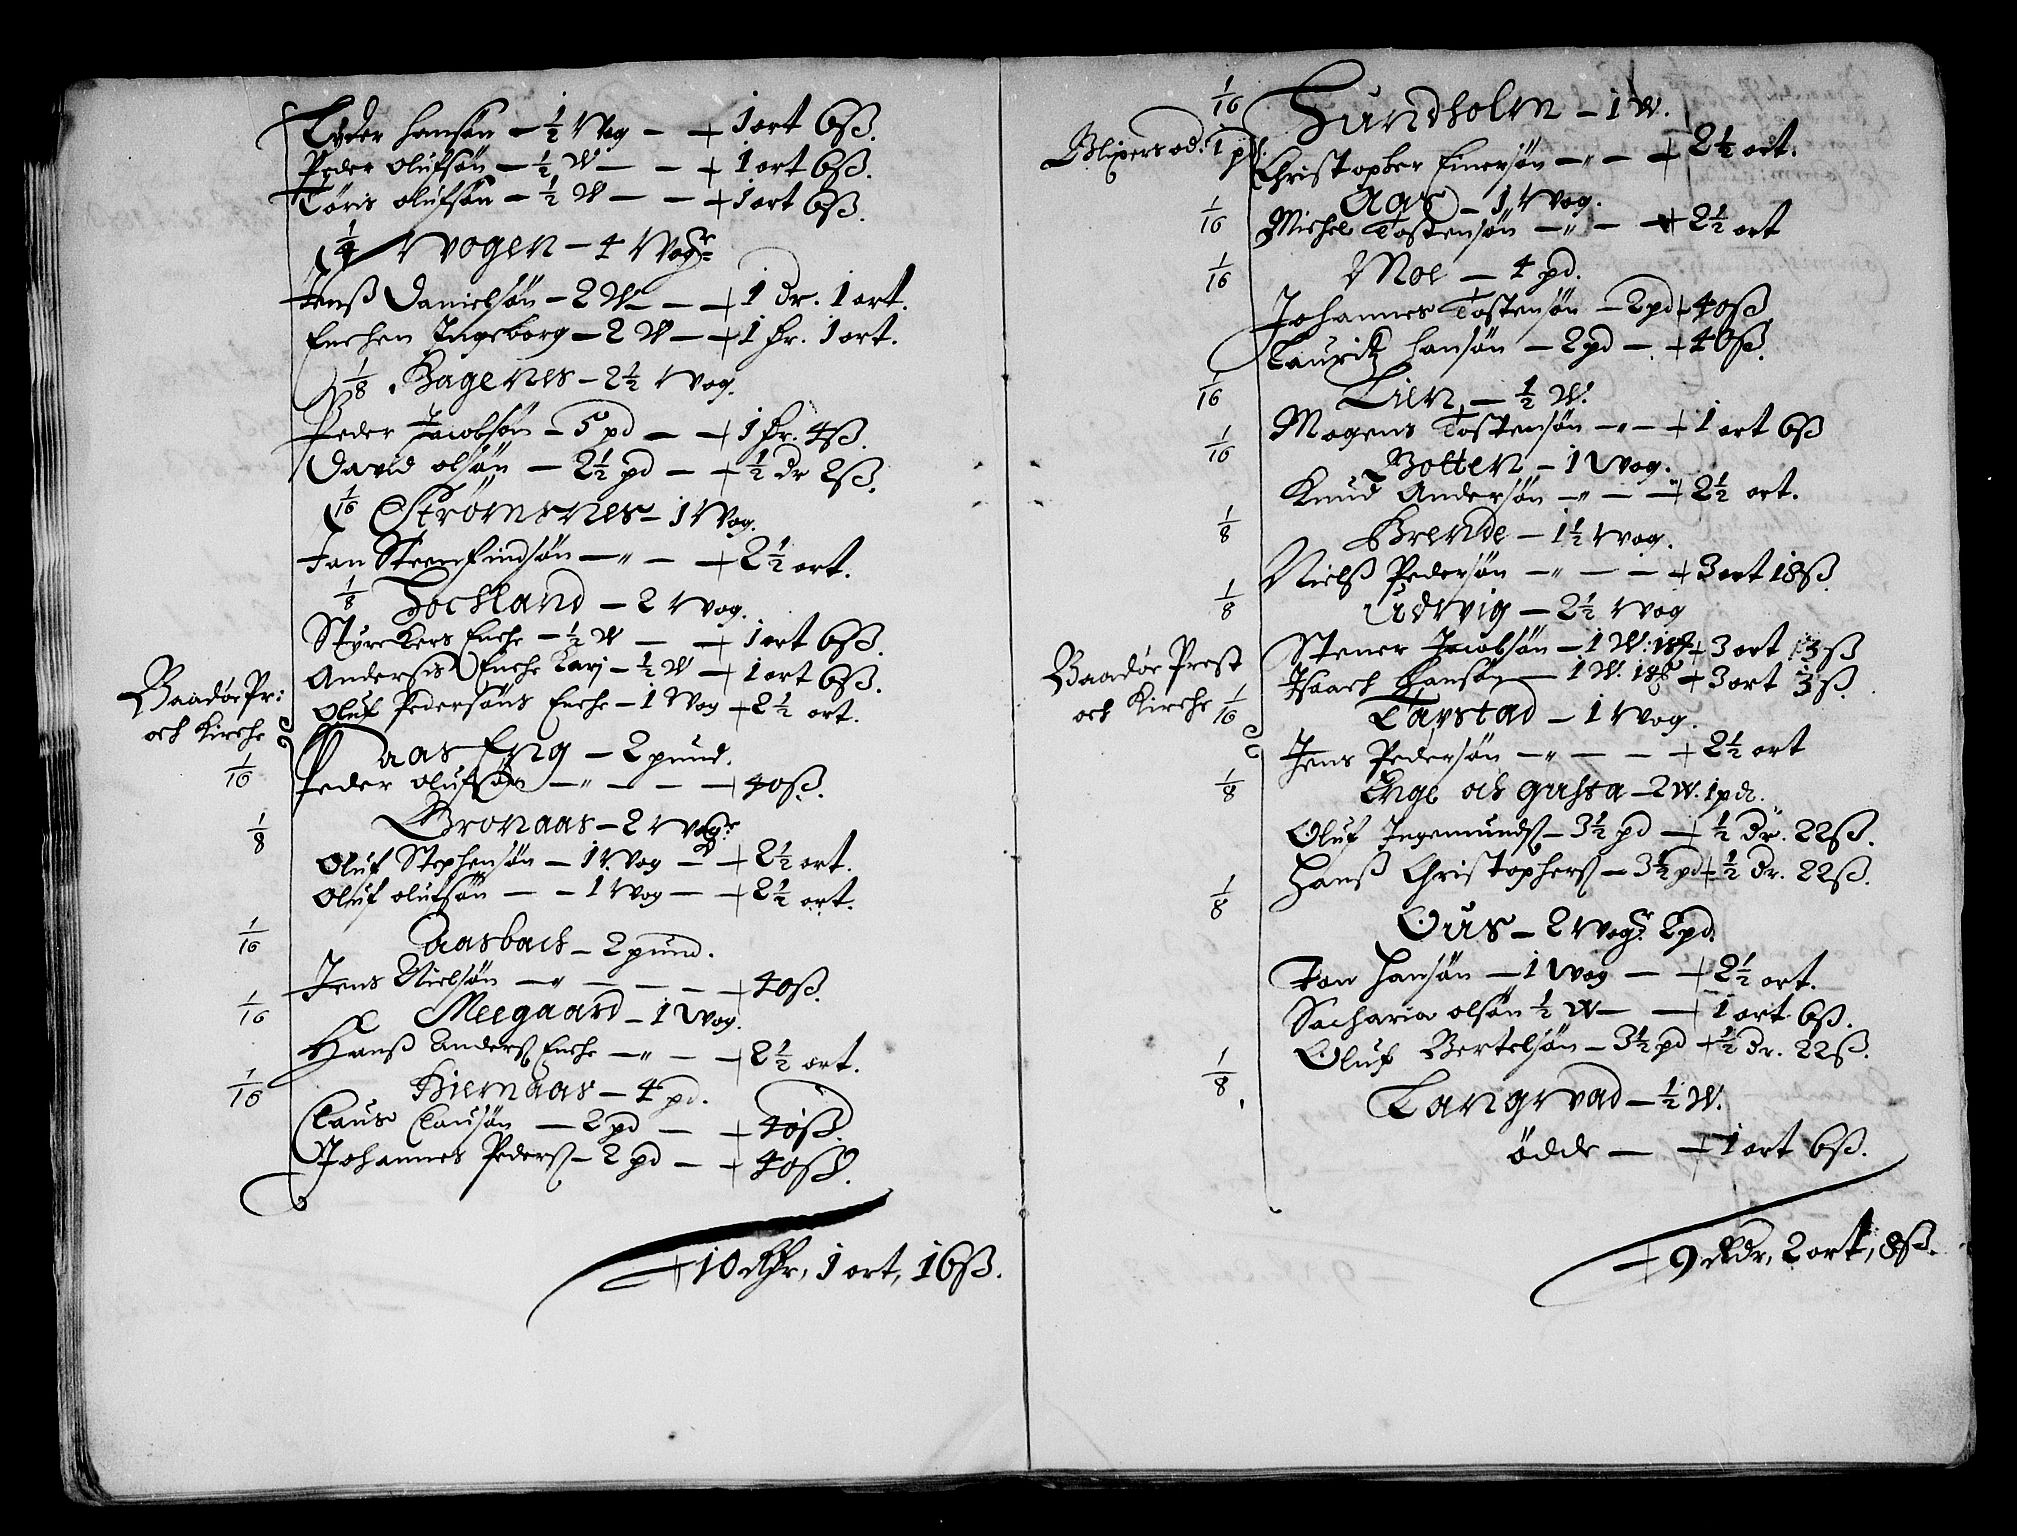 Peder hansøn — ½ Wog — + 1 ort 6ß.
Peder olufsøn — ½ W — + 1 ort 6ß.
Tøris olufsøn — ½ W — + 1 ort 6ß.
1/4 Wogen — 4 Wogr
Jenß Danielsøn — 2 W — + 1 dr. 1 ort.
Enchen Ingeborg — 2 W — + 1 dr. 1 ort.
1/8 Bagenes — 2½ Wog.
Peder Jacobsøn — 5 pd — + 1 dr. 4ß.
David olsøn — 2½ pd — + ½ dr 2ß.
1/16 Strømsnes — 1 Wog.
Jan Steenfindsøn — " — + 2½ ort.
1/8 Hochland — 2 Wog.
Styrckers Enche — ½ W — + 1 ort 6ß.
Andersis Enche Karj — ½ W — + 1 ort 6ß.
Baadøe Pr:
och Kirche
Oluf Pedersøns Enche — 1 Wog + 2½ ort.
1/16 Aaseng — 2 pund.
Peder olufsøn — " — + 40ß.
1/8 Bronaas — 2 Wogr
Oluf Stephensøn — 1 Wog — + 2½ ort.
Oluf olufsøn — 1 Wog — + 2½ ort.
1/16 Aasbach — 2 pund.
Jens Nielsøn — " — + 40ß.
1/16 Meegaard — 1 Wog.
Hanß Anders Enche — " — + 2½ ort.
1/16 Biernaas — 4 pd.
Claus Clausøn — 2 pd — + 40ß.
Johannes Peders — 2 pd — + 40ß.
+ 10 Rdr, 1 ort, 16ß.
1/16 Sundholm — 1 W.
Blixers od. 1 pd.
Christopher Einersøn — " — + 2½ ort.
1/16 Aas — 1 Wog.
Michel Tostensøn — " — + 2½ ort
1/16 Moe — 4 pd.
Johannes Tostensøn — 2 pd + 40ß
Lauritz hansøn — 2 pd — + 40ß.
1/16 Lien — ½ W.
Mogens Tostensøn — " — + 1 ort 6ß
1/16 Botten — 1 Wog.
Knud Andersøn — " — + 2½ ort.
1/8 Brende — 1½ Wog.
Nielß Pedersøn — " — + 3 ort 18ß.
1/8 Ludvig — 2½ Wog
Stener Jacobsøn — 1 W. 18 + 3 ort 3ß
Baadøe Prest
och Kirche
Isaach Hansøn — 1 W. 18 + 3 ort 3ß.
1/16 Tavstad — 1 Wog.
Jens Pedersøn — " — + 2½ ort
1/8 Enge och Gusta — 2 W. 1 pd.
Oluf Ingemunds — 3½ pd — + ½ dr. 22ß.
Hanß Christophers — 3½ pd + ½ dr. 22ß.
1/8 Ous — 2 Wogr 2 pd.
Jon Hansøn — 1 Wog — + 2½ ort.
Sacharia olsøn ½ W — + 1 ort 6ß.
Oluf Bertelsøn — 3½ pd + ½ dr. 22ß.
1/8 Langvad — ½ W.
ödde — + 1 ort 6ß.
+ 9 Rdr, 2 ort, 8ß.